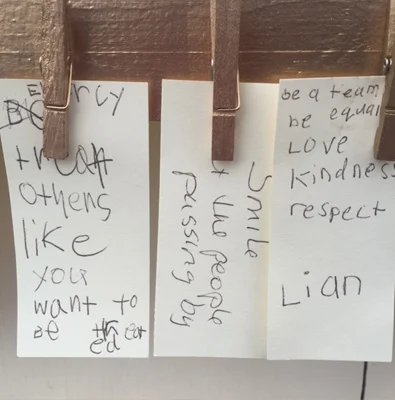 treat
others
like
you
want to
be treat
ed
Smile
the people
passing by
be a team
be equal
LOVE
kindness
respect
Lian